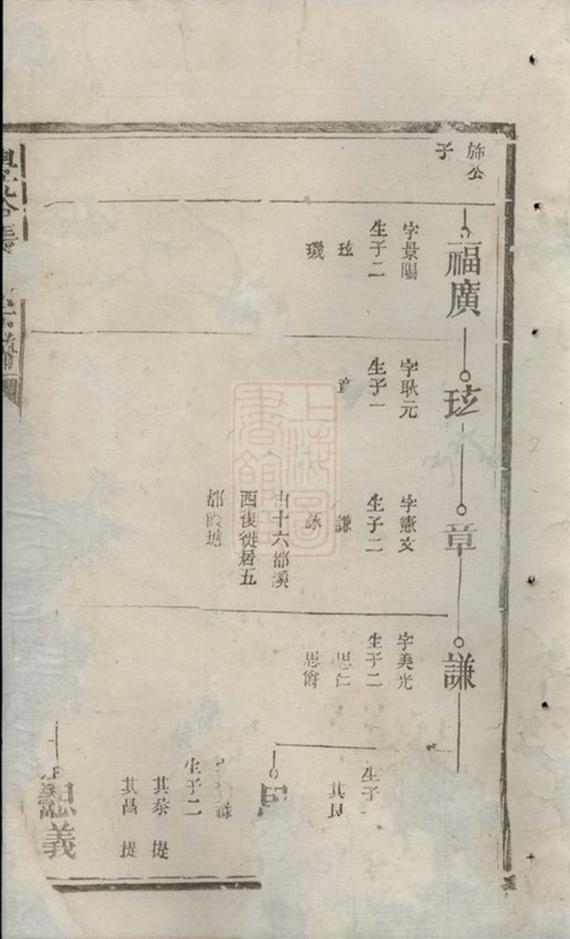 公
子
福廣
字景陽
生子二
玹
璣
玹
字耿元
生子一
章
章
字憲文
生子二
謙
詠
由十六都溪
西復徙居五
都霞塘
謙
字美光
生子二
思仁
思爵
生子
其良
生子二
其泰 提
其昌 提
義
上海圖書館藏